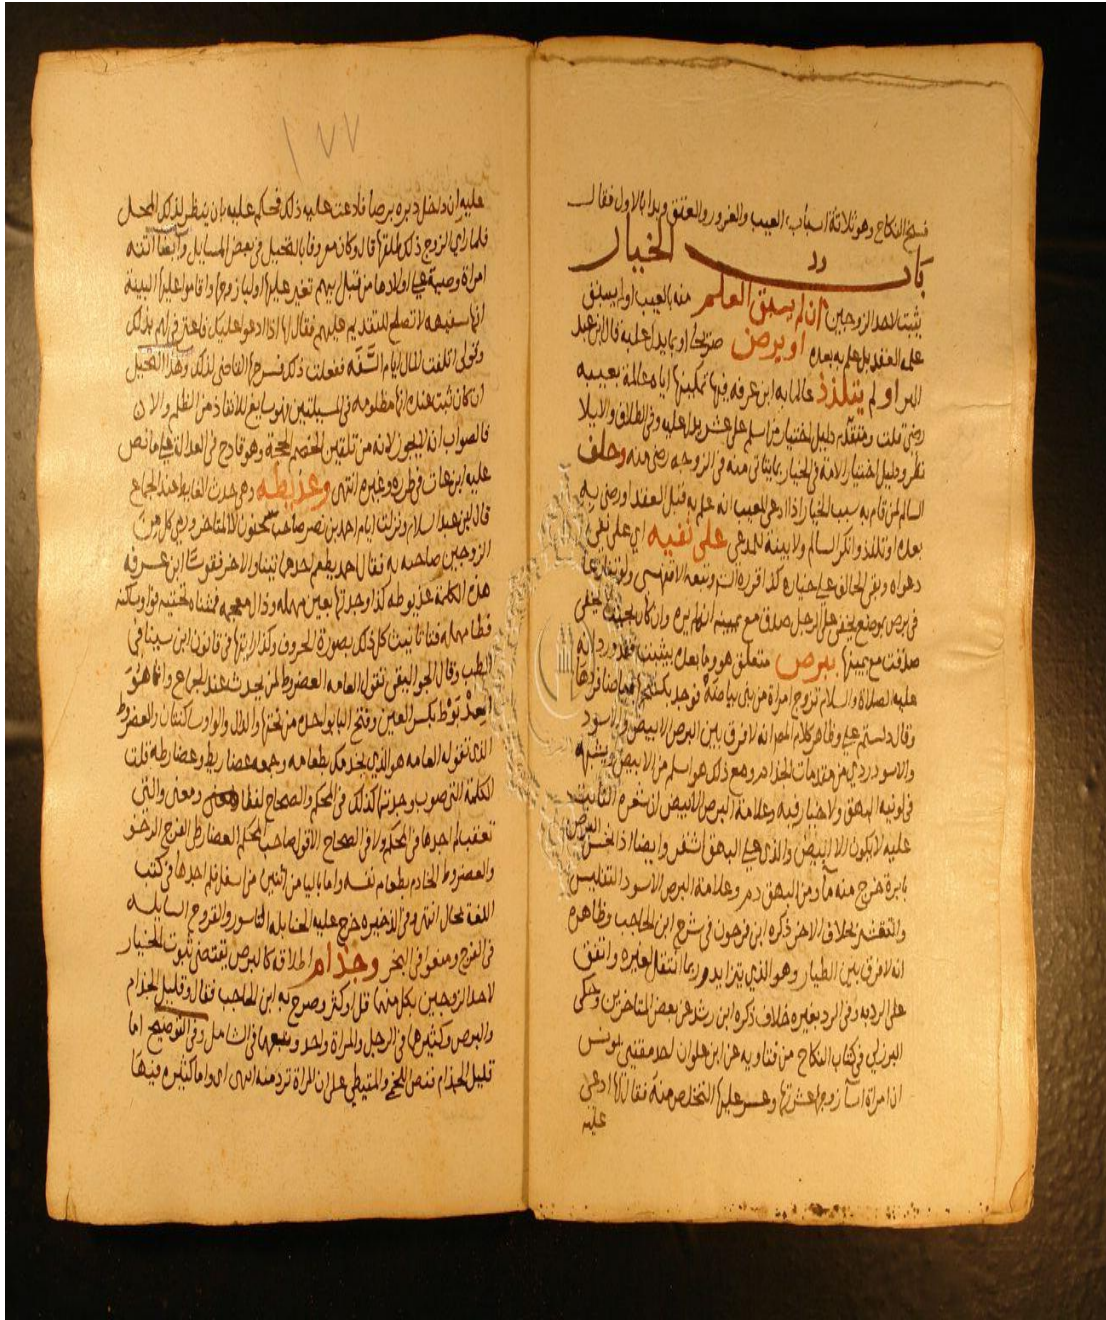 فسخ النكاح وهو ثلاثة اسباب العيب والغرور والعتق وبدا بالاول فقال
باب الخيار
يثبت لاحد الزوجين ان لم يسبق العلم منه بالعيب او لم يسبق
علمه العقد بل علم به بعده او يرض صريحا او بما يدل عليه قال ابن عبد
او لم يتلذذ عالما به ابن عرفه فيها تمكينها اياه عالمة بعيبه
رضى قلت ومتقدم دليل اختيار من اسلم على عشر يدل عليه وفي الطلاق والايلا
نظر ودليل اختيار الامة في الخيار بما يتاتى منه في الزوجه رضى منه وحلف
السالم لمن قام به سبب الخيار اذا ادعى المعيب انه علم به قبل العقد او رضى به
بعده او تلذذ وانكر السالم ولا بينة للمدعي على نفيه اي على نفي
دعواه وبقي الحالف على خياره كذا قرره
في برص بموضع يخفى على الرجل صدق مع يمينه
صدقت مع يمينها ببرص متعلق هو وما بعده بيثبت فقد ورد انه
عليه الصلاة والسلام تزوج امراة من بني بياضة فوجد بكشحها بياضا فردها
وظاهر كلام المص انه لا فرق بين البرص الابيض والاسود
والاسود ردي من مقدمات الجذام ومع ذلك هو اسلم من الابيض ويشبهه
في لونيه البهق ولا خيار فيه وعلامة البرص الابيض ان شعره النابت
عليه لا يكون الا ابيض والذي على البهق اشقر وايضا اذا نخس البرص
بابرة خرج منه ماء ومن البهق دم وعلامة البرص الاسود التفليس
والتقشر بخلاف الاخر ذكره ابن فرحون في شرح ابن الحاجب وظاهره
انه لا فرق بين الطيار وهو الذي يتزايد وربما انتقل لغيره واتفق
على الرد به وفي الرد بغيره خلاف ذكره ابن رشد عن بعض المتاخرين وحكى
البرزلي في كتاب النكاح من فتاويه عن ابن علوان احد مفتيي تونس
ان امراة اسا زوجها عشرتها وعسر عليها التخلص منه فقال لها ادعي
عليه
١٧٧
عليه ان داخل دبره برصا فادعت عليه ذلك فحكم عليه بان ينظر لذلك المحل
فلما راى الزوج ذلك طلقها قال وكان معروفا بالتحيل في بعض المسايل وايضا اتته
امراة وصية على اولادها من قبل ابيهم تغير عليها اوليا زوجها واقاموا عليها البينة
انها سفيهه لا تصلح للتقديم عليهم فقال لها اذا ادعوا عليك فاعترفي لهم بذلك
وقولي اتلفت المال ايام السفه ففعلت ذلك فسرحها القاضي لذلك وهذا التحيل
ان كان ثبت عنده انها مظلومه في المسيلتين فهو سايغ للانقاذ من الظلم والا
فالصواب انه لا يجوز لانه من تلقين الخصم الحجة وهو قادح في العدالة على ما نص
عليه ابن عات في طرره وغيره انتهى وعذيطه وهي حدث الغايط عند الجماع
قال ابن عبد السلام ونزلت ايام احمد بن نصر صاحب سحنون من المتاخر ورمى كل من
الزوجين صاحبه به فقال احمد يطعم احدهما تينا والاخر فقوسا ابن عرفه
هذه الكلمة عذيوطه كذا وجدتها بعين مهمله وذال معجمه فمثناه تحتيه فواو ساكنه
فطا مهمله فتا تانيث كل ذلك بصورة الحروف وكذا رايتها في قانون ابن سينا في
الطب وقال الجواليقي تقول العامه العضروط لمن يحدث عند الجماع وانما هو
العذيوط بكسر العين وفتح اليا بواحدة من تحتها والذال والواو ساكنتان والعضروط
الذي تقوله العامه هو الذي يخدمك بطعامه وجمعه عضاريط وعضارطه قلت
الكلمة التي صوب وجدتها كذلك في المحكم والصحاح لفظا ومعنى والتي
تعقب لم اجدها في المحكم ولا في الصحاح الا قول صاحب المحكم العضارط الفرج الرخو
والعضروط الخادم بطعام نفسه واما باليا من اثنتين من اسفل فلم اجدها في كتب
اللغة بحال انتهى وفي الاخيره خرج عليه الحنابله الناسور والقروح السايله
في الفرج ومنعو في البخر وجذام اطلاقه كالبرص يقتضي ثبوت الخيار
لاحد الزوجين بكل منهما قل او كثر وصرح به ابن الحاجب فقال وقليل الجذام
والبرص وكثيرها في الرجل والمراة واحد وتبعهما في الشامل وفي التوضيح اما
قليل الجذام فنص اللخمي والمتيطي على ان المراة ترد منه واما كثيره فيها